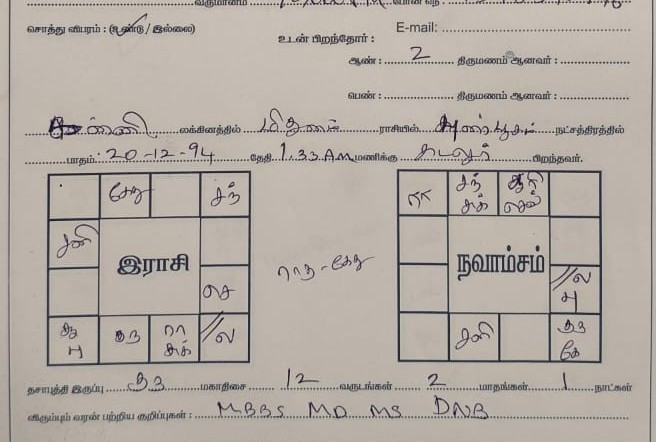 வருமானம்
சொத்து விபரம் : (உண்டு / இல்லை)
E-mail:
உடன் பிறந்தோர் :
ஆண் : 2 திருமணம் ஆனவர் :
பெண் : திருமணம் ஆனவர் :
லக்கினத்தில் மிதுனம் ராசியில் நட்சத்திரத்தில்
பாதம் : 20-12-94 தேதி 1.33 A.M மணிக்கு கடலூர் பிறந்தவர்.
சேது சந்
சனி
இராசி
செ
ஆ பு குரு ரா சுக் // ல
ராகு - கேது
ரா சந் சுக்
நவாம்சம்
// ல பு
சனி குரு கே
தசாபுத்தி இருப்பு குரு மகாதிசை 12 வருடங்கள் 2 மாதங்கள் 1 நாட்கள்
விரும்பும் வரன் பற்றிய குறிப்புகள் : MBBS MD MS DNB